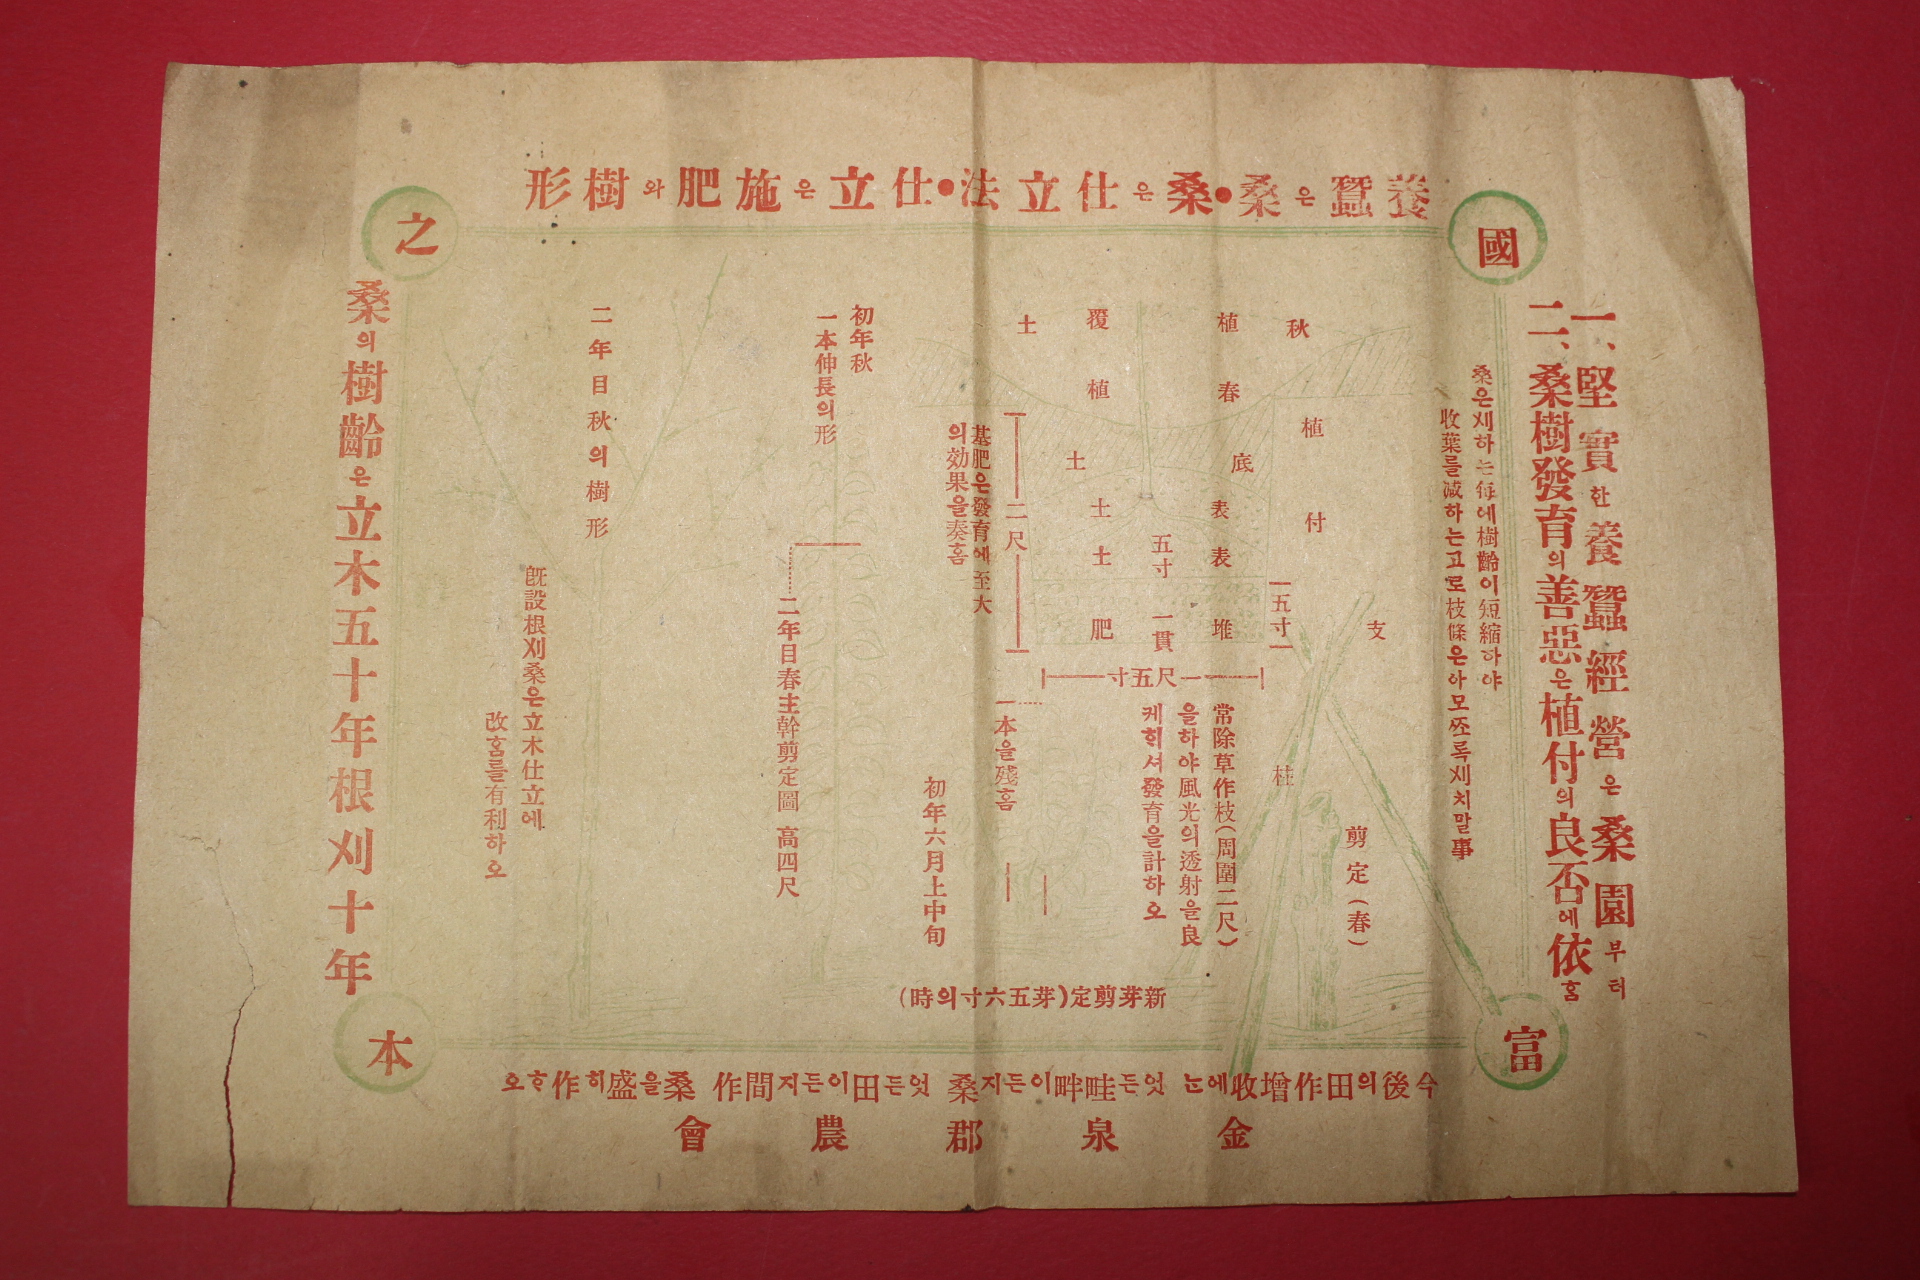 養蚕은桑●桑은仕立法●仕立은施肥와樹形
國
富
之
本
一、堅實한養蠶經營은桑園부터
二、桑樹發育의善惡은植付의良否에依홈
桑은刈하는每에樹齡이短縮하야
收葉를减하는고로枝條은아모쪼록刈치말事
秋植付
支柱
剪定(春)
植春
底
表表堆
五寸
五寸
一貫
覆植土土肥
土
土
二尺
一尺五寸
基肥은發育에至大
의効果을奏홈
常除草作枝(周圍二尺)
을하야風光의透射을良
케히셔發育을計하오
一本을殘홈
初年六月上中旬
新芽剪定(芽五六寸의時)
初年秋
一本伸長의形
二年目春主幹剪定圖 高四尺
二年目秋의樹形
旣設根刈桑은立木仕立에
改홈를有利하오
桑의樹齡은立木五十年根刈十年
今後의田作增收에는 엇든畦畔이든지桑 엇든田이든지間作 桑을盛히作하오
金泉郡農會